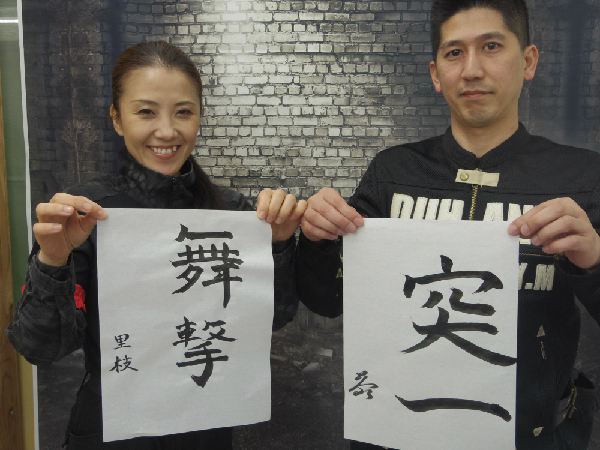 舞撃
里枝
突一
DUH AN
Y.M